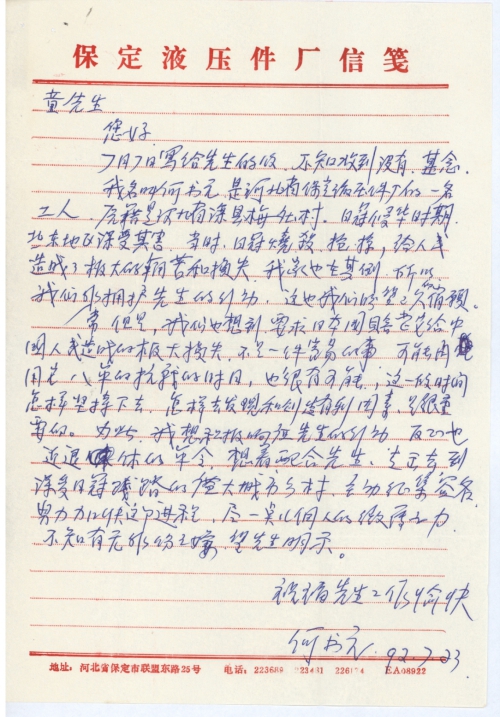 保定液压件厂信笺
童先生
您好
7月7日写给先生的收，不知收到没有，甚念。
我名叫何书元，是河北省保定液压件厂的一名
工人，原籍是河北省深县梅 村。日寇侵华时期，
北东地区深受其害，当时，日寇烧、殺、抢、掠，给人民
造成了极大的痛苦和损失，我家也在其例，所以
我们很拥护先生的行动，这也我们的望之宿愿。
当但是，我们也想到，要求日本国自己老老给中
国人民造成的极大损失，不是一件容易的事，可能用
用去八年的抗戰的时日，也很有可能，这一段时间
怎样坚持下去，怎样去发现和创造有利因素，是很重
要的。为此，我想积极响应先生的行动，反正也
近退休的年令，想着配合先生，走去到
深受日寇 踏的广大城市乡村，主动征集签名，
努力加快这个进程，尽一点儿個人的微薄之力，
不知有无 ，望先生明示。
祝福先生工作愉快
何书元 92.7.23
地址：河北省保定市联盟东路25号 电话：223688 223431 EA08922